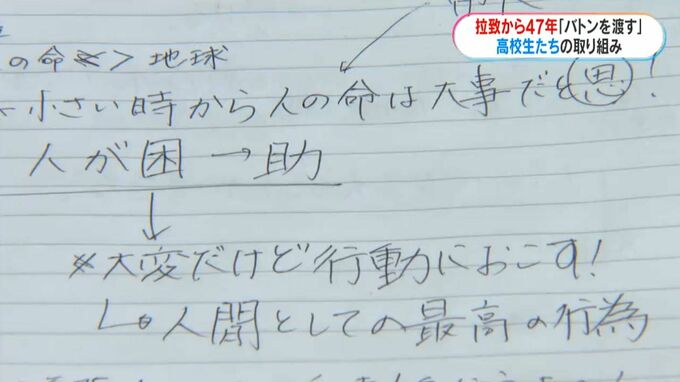 拉致から47年「バトンを渡す」
高校生たちの取り組み
の命 <> 地球
小さい時から人の命は大事だと思!
人が困→助
↓
※大変だけど行動におこす!
人間としての最高の行為